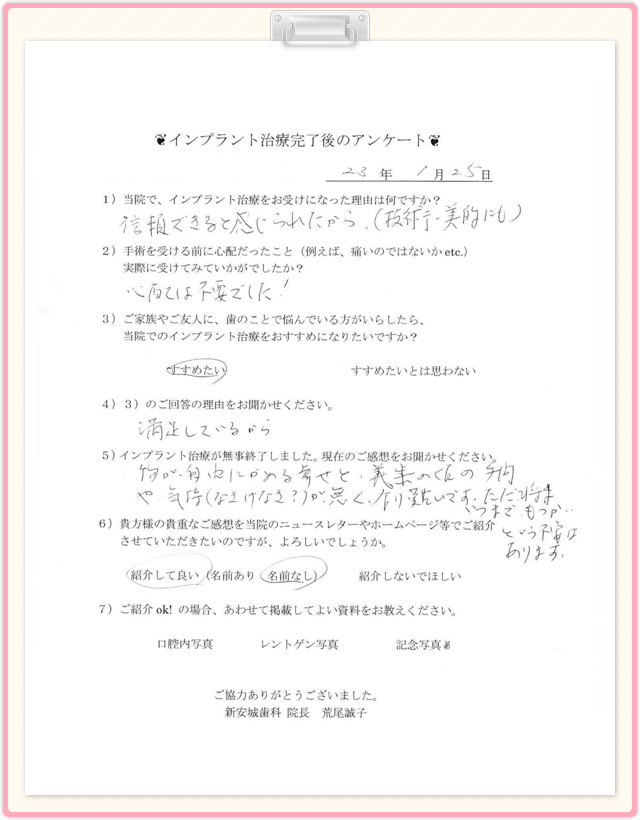 ❦インプラント治療完了後のアンケート❦
23 年 1 月 25 日
1）当院で、インプラント治療をお受けになった理由は何ですか？
信頼できると感じられたから、（技術、美的にも）
2）手術を受ける前に心配だったこと（例えば、痛いのではないか etc.）
実際に受けてみていかがでしたか？
心配は不要でした！
3）ご家族やご友人に、歯のことで悩んでいる方がいらしたら、
当院でのインプラント治療をおすすめになりたいですか？
すすめたい すすめたいとは思わない
4）3）のご回答の理由をお聞かせください。
満足しているから
5）インプラント治療が無事終了しました。現在のご感想をお聞かせください。
物が自由にかめる幸せと、義歯の
や、気持（なさけなさ？）が無く、有り難いです。ただ将来
いつまでもつか…
という不安は
あります。
6）貴方様の貴重なご感想を当院のニュースレターやホームページ等でご紹介
させていただきたいのですが、よろしいでしょうか。
紹介して良い（名前あり 名前なし） 紹介しないでほしい
7）ご紹介 ok! の場合、あわせて掲載してよい資料をお教えください。
口腔内写真 レントゲン写真 記念写真
ご協力ありがとうございました。
新安城歯科 院長 荒尾誠子